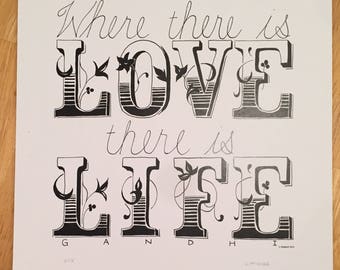 Where there is
LOVE
there is
LIFE
GANDHI